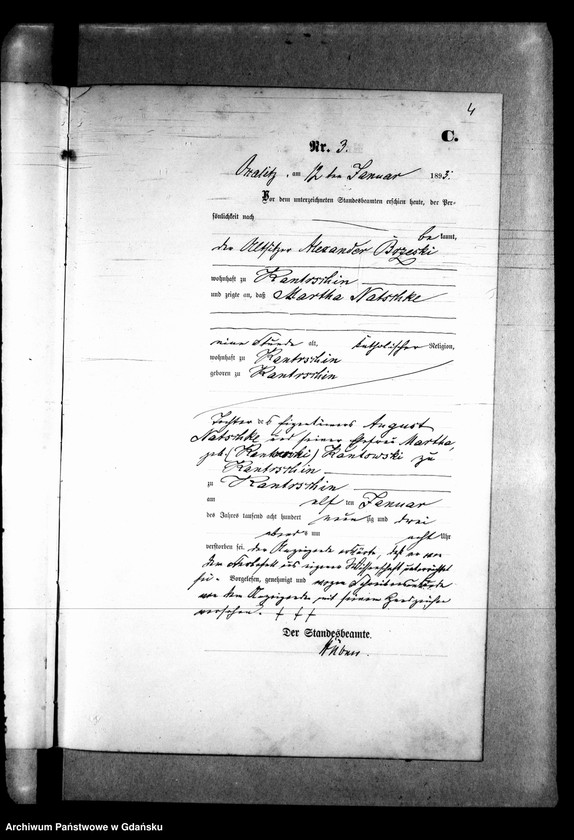 4
C.
Nr. 3.
am 12 ten Januar 1893.
Vor dem unterzeichneten Standesbeamten erschien heute, der Per-
sönlichkeit nach
be kannt,
der Altsitzer Alexander Brzeski
wohnhaft zu Kantrschin
und zeigte an, daß Martha Natschke
eine Stunde alt, katholischer Religion,
wohnhaft zu Kantrschin
geboren zu Kantrschin
Tochter des Eigentümers August
Natschke und seiner Ehefrau Martha,
geb. Kantowski zu
Kantrschin
zu Kantrschin
am elf ten Januar
des Jahres tausend acht hundert neun zig und drei
abends um acht Uhr
verstorben sei. Der Anzeigende erklärte, daß er von
dem Sterbefall aus eigener Wissenschaft unterrichtet
sei. Vorgelesen, genehmigt und wegen Schreibensunkunde
von dem Anzeigenden mit seinem Handzeichen
versehen. + + +
Der Standesbeamte.
Archiwum Państwowe w Gdańsku